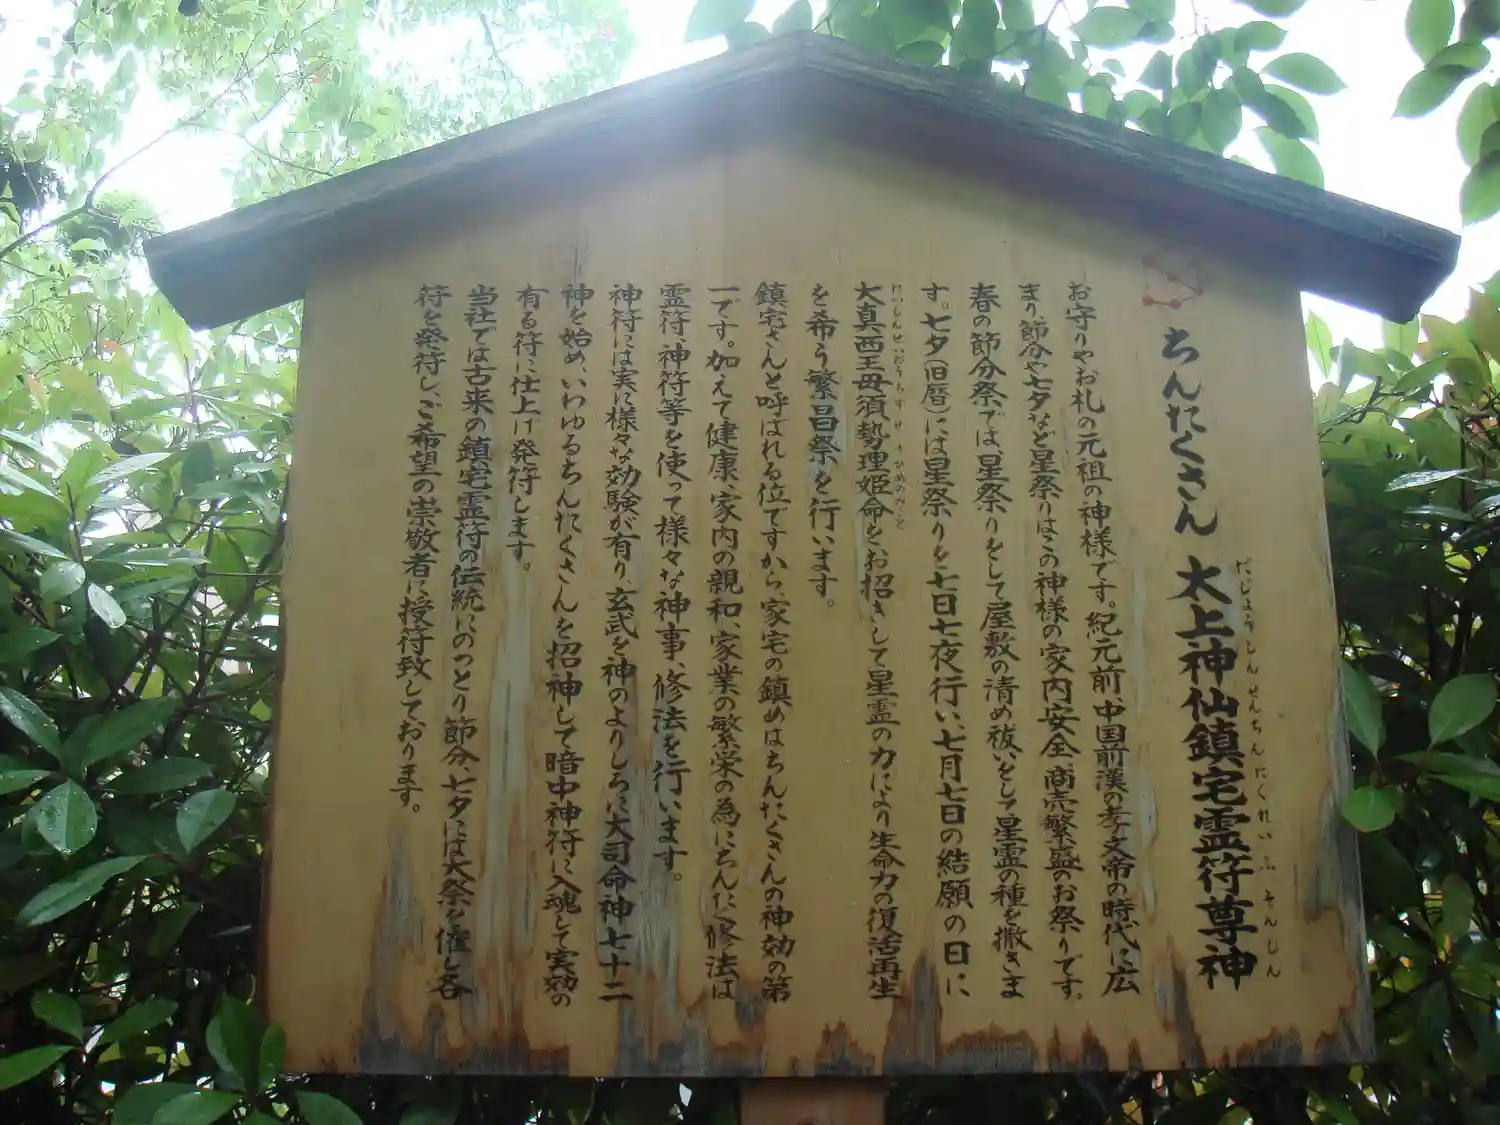 ちんたくさん 太上神仙鎮宅霊符尊神
だじょうしんせんちんたくれいふそんじん
お守りやお札の元祖の神様です。紀元前、中国前漢の孝文帝の時代に広
まり、節分や七夕など星祭りはこの神様の家内安全、商売繁盛のお祭りです。
春の節分祭では、星祭りをして屋敷の清め祓いをして星霊の種を撒きま
す。七夕(旧暦)には星祭りを七日七夜行い、七月七日の結願の日に
大真西王母須勢理姫命をお招きして星霊の力により生命力の復活再生
を希う繁昌祭を行います。
鎮宅さんと呼ばれる位ですから、家宅の鎮めはちんたくさんの神効の第
一です。加えて健康、家内の親和、家業の繁栄の為にちんたく修法は
霊符、神符等を使って様々な神事、修法を行います。
神符には実に様々な効験が有り、玄武を神のよりしろに大司命神七十二
神を始め、いわゆるちんたくさんを招神して暗中神符に入魂して実効の
有る符に仕上げ発符します。
当社では古来の鎮宅霊符の伝統にのっとり節分、七夕には大祭を催し各
符を発符し、ご希望の崇敬者に授符致しております。